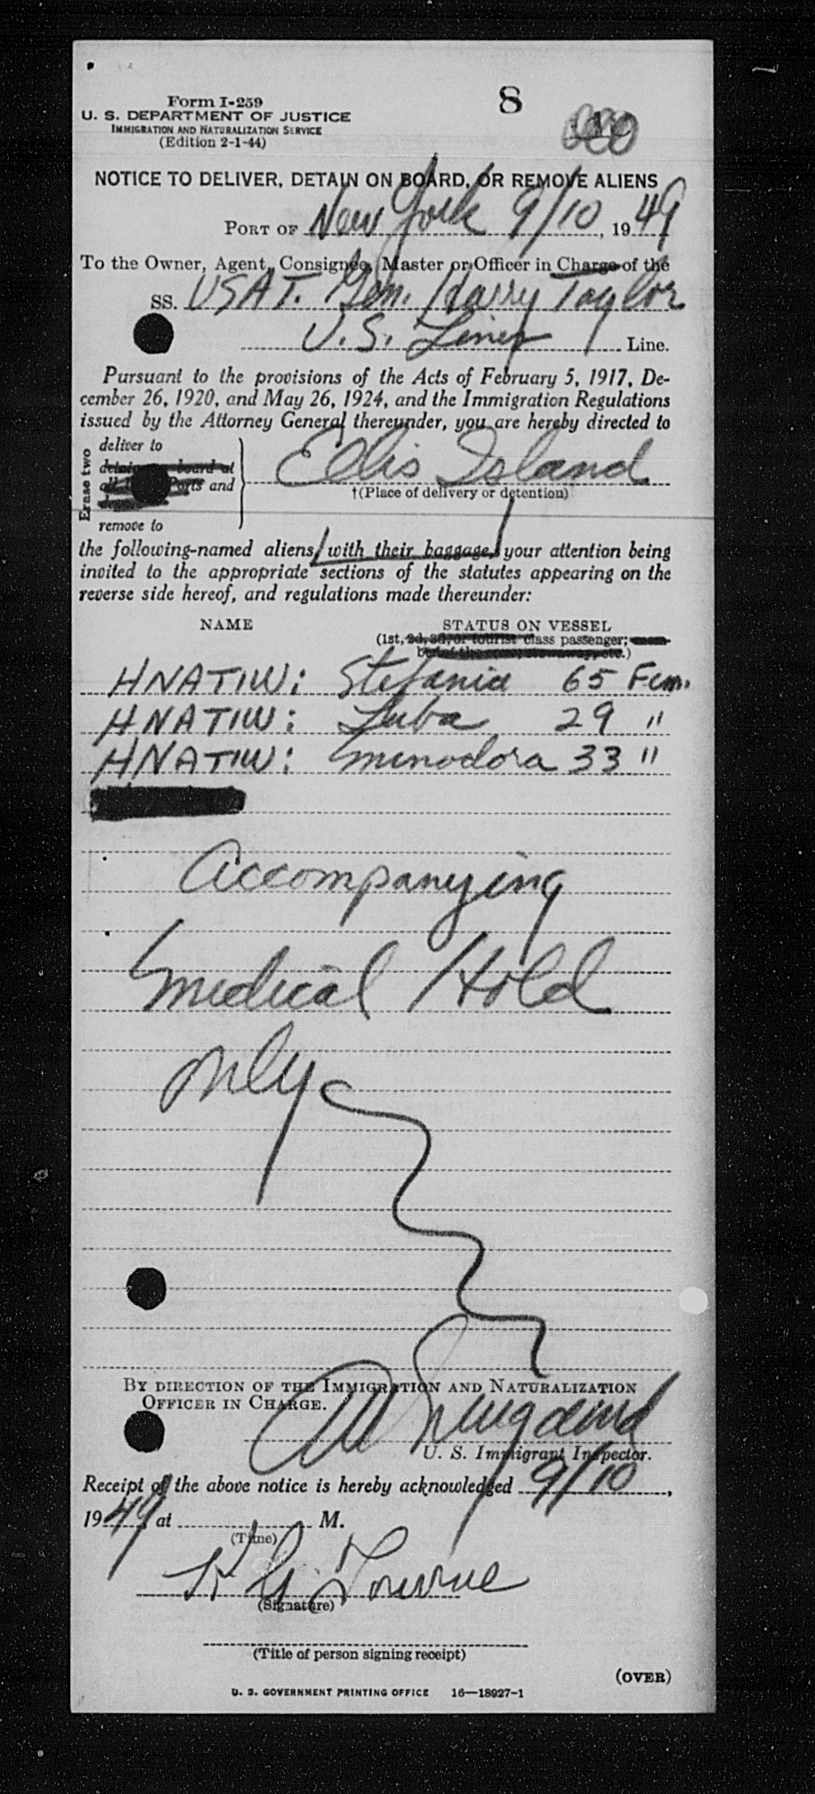 8
Form I-259
U. S. DEPARTMENT OF JUSTICE
IMMIGRATION AND NATURALIZATION SERVICE
(Edition 2-1-44)
NOTICE TO DELIVER, DETAIN ON BOARD, OR REMOVE ALIENS
PORT OF New York 9/10, 1949
To the Owner, Agent, Consignee, Master or Officer in Charge of the
SS. USAT. Gen. Harry Taylor
U.S. Lines Line.
Pursuant to the provisions of the Acts of February 5, 1917, De-
cember 26, 1920, and May 26, 1924, and the Immigration Regulations
issued by the Attorney General thereunder, you are hereby directed to
Erase two
deliver to
detain on board at
all Ports and
remove to
Ellis Island
†(Place of delivery or detention)
the following-named aliens, with their baggage, your attention being
invited to the appropriate sections of the statutes appearing on the
reverse side hereof, and regulations made thereunder:
NAME STATUS ON VESSEL
(1st, 2d, 3d, or tourist class passenger; mem-
ber of the crew, stowaway, etc.)
HNATIW: Stefania 65 Fem.
HNATIW: Luba 29 "
HNATIW: Minodora 33 "
Accompanying
Medical Hold
only
BY DIRECTION OF THE IMMIGRATION AND NATURALIZATION
OFFICER IN CHARGE.
U. S. Immigrant Inspector.
Receipt of the above notice is hereby acknowledged 9/10,
1949 at M.
(Time)
(Signature)
(Title of person signing receipt)
(OVER)
U. S. GOVERNMENT PRINTING OFFICE 16—18927-1